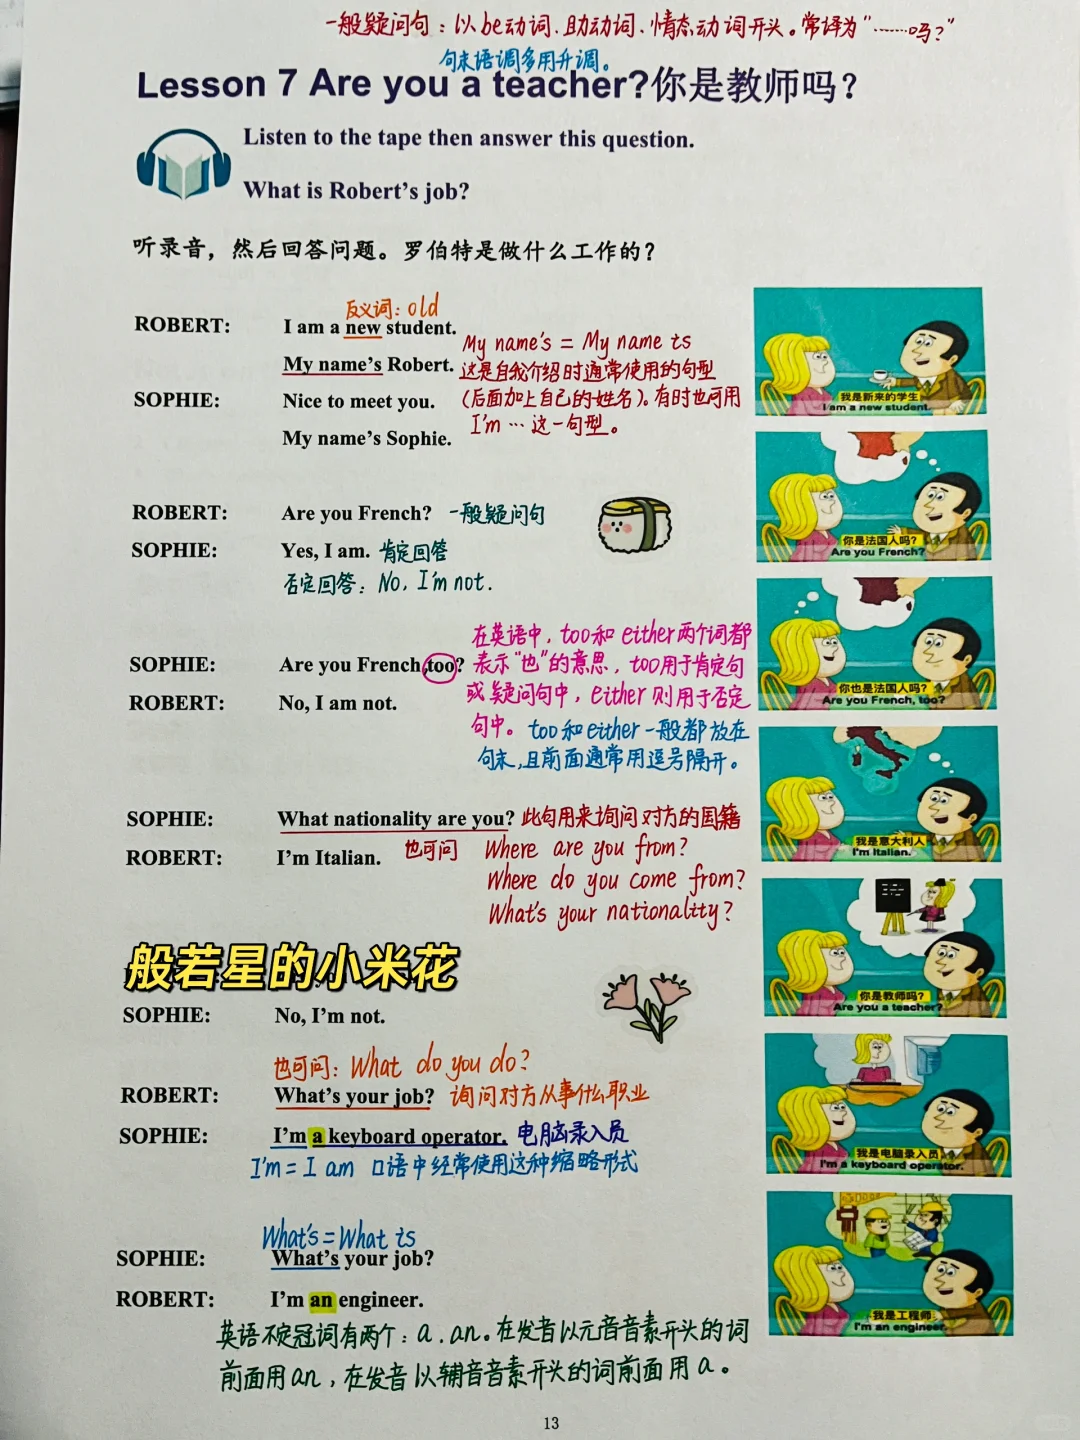 一般疑问句：以be动词、助动词、情态动词开头。常译为“……吗？”
句末语调多用升调。
Lesson 7 Are you a teacher?你是教师吗？
Listen to the tape then answer this question.
What is Robert’s job?
听录音，然后回答问题。罗伯特是做什么工作的？
反义词：old
ROBERT: I am a new student.
My name’s = My name is
My name’s Robert.
这是自我介绍时通常使用的句型
SOPHIE: Nice to meet you.
(后面加上自己的姓名)。有时也可用
My name’s Sophie.
I’m … 这一句型。
我是新来的学生
I am a new student.
ROBERT: Are you French? 一般疑问句
SOPHIE: Yes, I am. 肯定回答
否定回答：No, I’m not.
你是法国人吗？
Are you French?
在英语中，too和either两个词都
SOPHIE: Are you French,too? 表示“也”的意思，too用于肯定句
ROBERT: No, I am not.
或疑问句中，either则用于否定
句中。too和either一般都放在
句末，且前面通常用逗号隔开。
你也是法国人吗？
Are you French, too?
SOPHIE: What nationality are you? 此句用来询问对方的国籍
ROBERT: I’m Italian.
也可问 Where are you from?
Where do you come from?
What’s your nationality?
我是意大利人
I'm Italian.
般若星的小米花
SOPHIE: No, I’m not.
你是教师吗？
Are you a teacher?
也可问：What do you do?
ROBERT: What’s your job? 询问对方从事什么职业
SOPHIE: I’m a keyboard operator. 电脑录入员
I’m = I am 口语中经常使用这种缩略形式
我是电脑录入员
I'm a keyboard operator.
What’s = What is
SOPHIE: What’s your job?
ROBERT: I’m an engineer.
我是工程师
I'm an engineer.
英语不定冠词有两个：a、an。在发音以元音音素开头的词
前面用an，在发音以辅音音素开头的词前面用a。
13